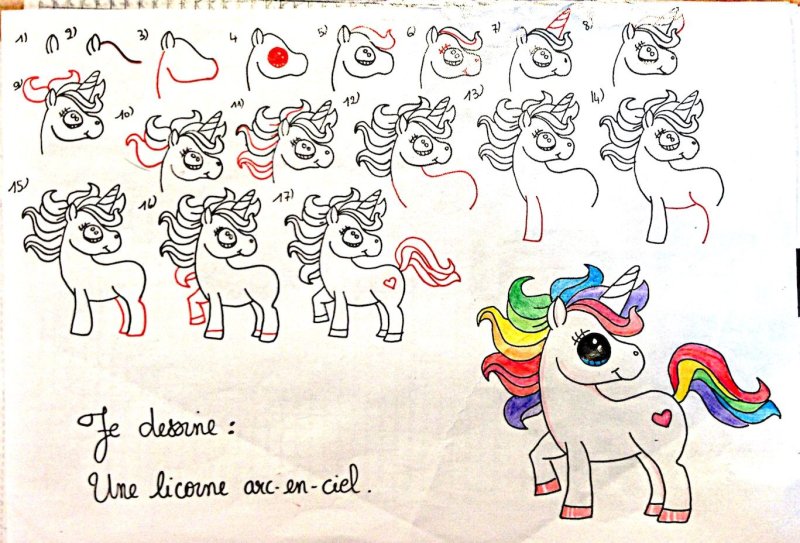 1) 2) 3) 4 5) 6) 7) 8)
9) 10) 11) 12) 13) 14)
15) 16) 17)
Je dessine :
Une licorne arc-en-ciel.